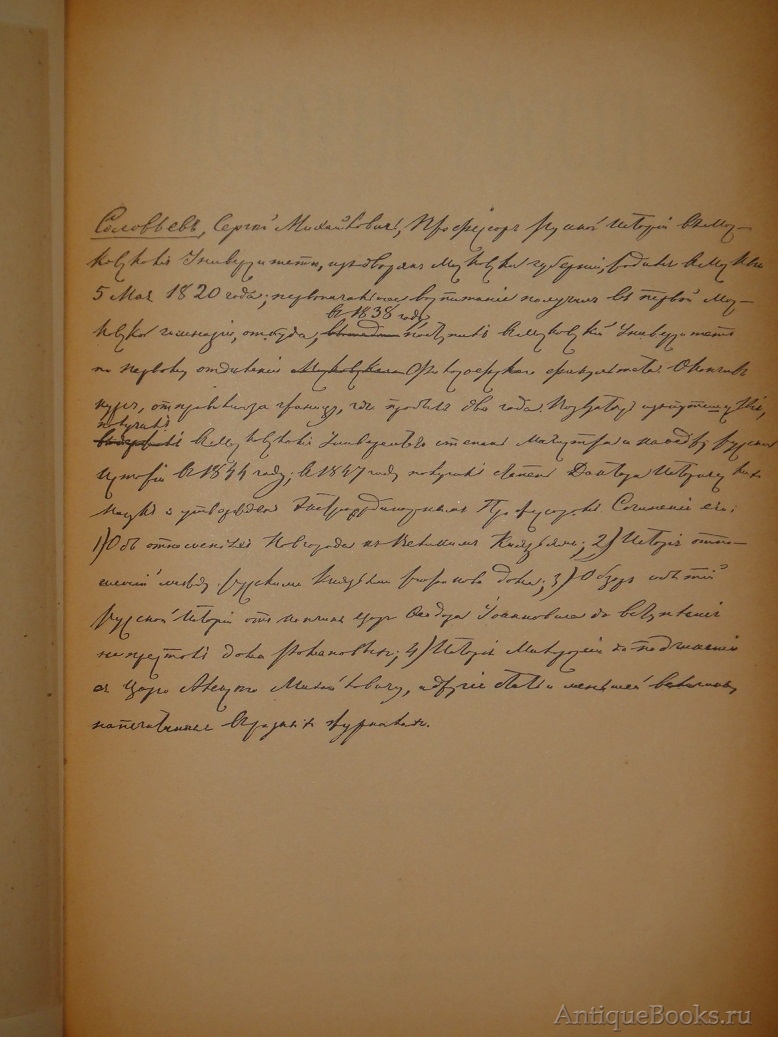 Соловьевъ, Сергѣй Михайловичъ, Профессоръ Русской Исторіи въ Мос-
ковскомъ Университетѣ, изъ дворянъ Московской губерніи, родился въ Москвѣ
5 Мая 1820 года; первоначальное воспитаніе получилъ въ первой Мос-
въ 1838 году
ковской гимназіи, откуда, поступилъ въ Московскій Университетъ
по первому отдѣленію Московскаго Философскаго факультета. Окончивъ
курсъ, отправился за границу, гдѣ пробылъ два года. По
получилъ
въ Московскомъ Университетѣ степень Магистра Русской
Исторіи въ 1844 году; въ 1847 году получилъ степень Доктора Историческихъ
наукъ и утвержденъ Экстраординарнымъ Профессоромъ. Сочиненія его:
1) Объ отношеніяхъ Новгорода къ Великимъ Князьямъ; 2) Исторія отно-
шеній между Русскими Князьями Рюрикова дома; 3) Обзоръ событій
Русской Исторіи отъ кончины Царя Ѳеодора Іоанновича до вступленія
на престолъ дома Романовыхъ; 4) Исторія Малороссіи до подчиненія
ея Царю Алексѣю Михайловичу, и другія статьи меньшей величины,
напечатанныя въ разныхъ журналахъ.
AntiqueBooks.ru